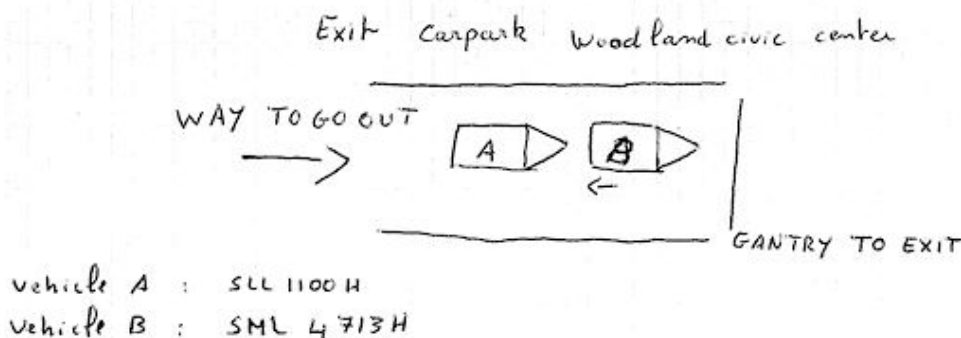 Exit Carpark Woodland civic center
WAY TO GO OUT
A B
GANTRY TO EXIT
vehicle A : SLL 1100 H
vehicle B : SML 4713 H